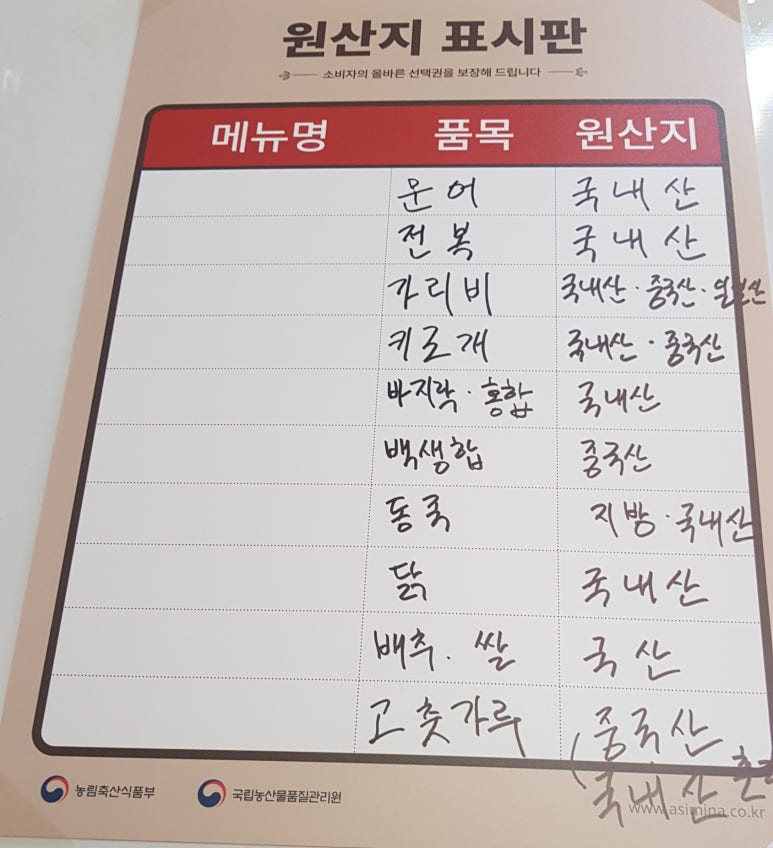 원산지 표시판
소비자의 올바른 선택권을 보장해 드립니다
메뉴명 품목 원산지
문어 국내산
전복 국내산
가리비 국내산 · 중국산 · 일본산
키로개 국내산 · 중국산
바지락 · 홍합 국내산
백생합 중국산
동죽 지방 · 국내산
닭 국내산
배추 . 쌀 국산
고춧가루 (중국산
국내산
농림축산식품부 국립농산물품질관리원
www.asimina.co.kr